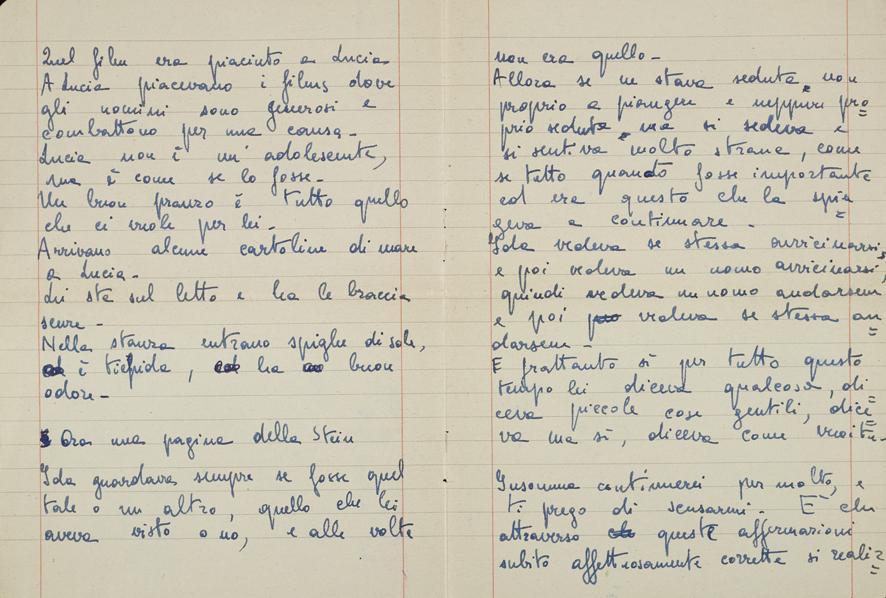 Quel film era piaciuto a Lucia
A Lucia piacevano i films dove
gli uomini sono generosi e
combattono per una causa -
Lucia non è un' adolescente,
ma è come se lo fosse -
Un buon pranzo è tutto quello
che ci vuole per lei -
Arrivano alcune cartoline di mare
a Lucia -
Lei sta sul letto e ha le braccia
scure -
Nella stanza entrano spighe di sole,
è tiepida, ha buon
odore -
Ora una pagina della Stein
Ida guardava sempre se fosse quel
tale o un altro, quello che lei
aveva visto o no, e alle volte
non era quello -
Allora se ne stava seduta, non
proprio a piangere e neppure pro
prio seduta, ma si sedeva e
si sentiva molto strana, come
se tutto quando fosse importante
ed era questo che la spin
geva a continuare -
Ida vedeva se stessa avvicinarsi,
e poi vedeva un uomo avvicinarsi,
quindi vedeva un uomo andarsene
e poi vedeva se stessa an
darsene -
E frattanto sì per tutto questo
tempo lei diceva qualcosa, di
ceva piccole cose gentili, dice
va ma sì, diceva come
Insomma continuerei per molto, e
ti prego di scusarmi - E che
attraverso queste affermazioni
subito affettuosamente corrette si realiz